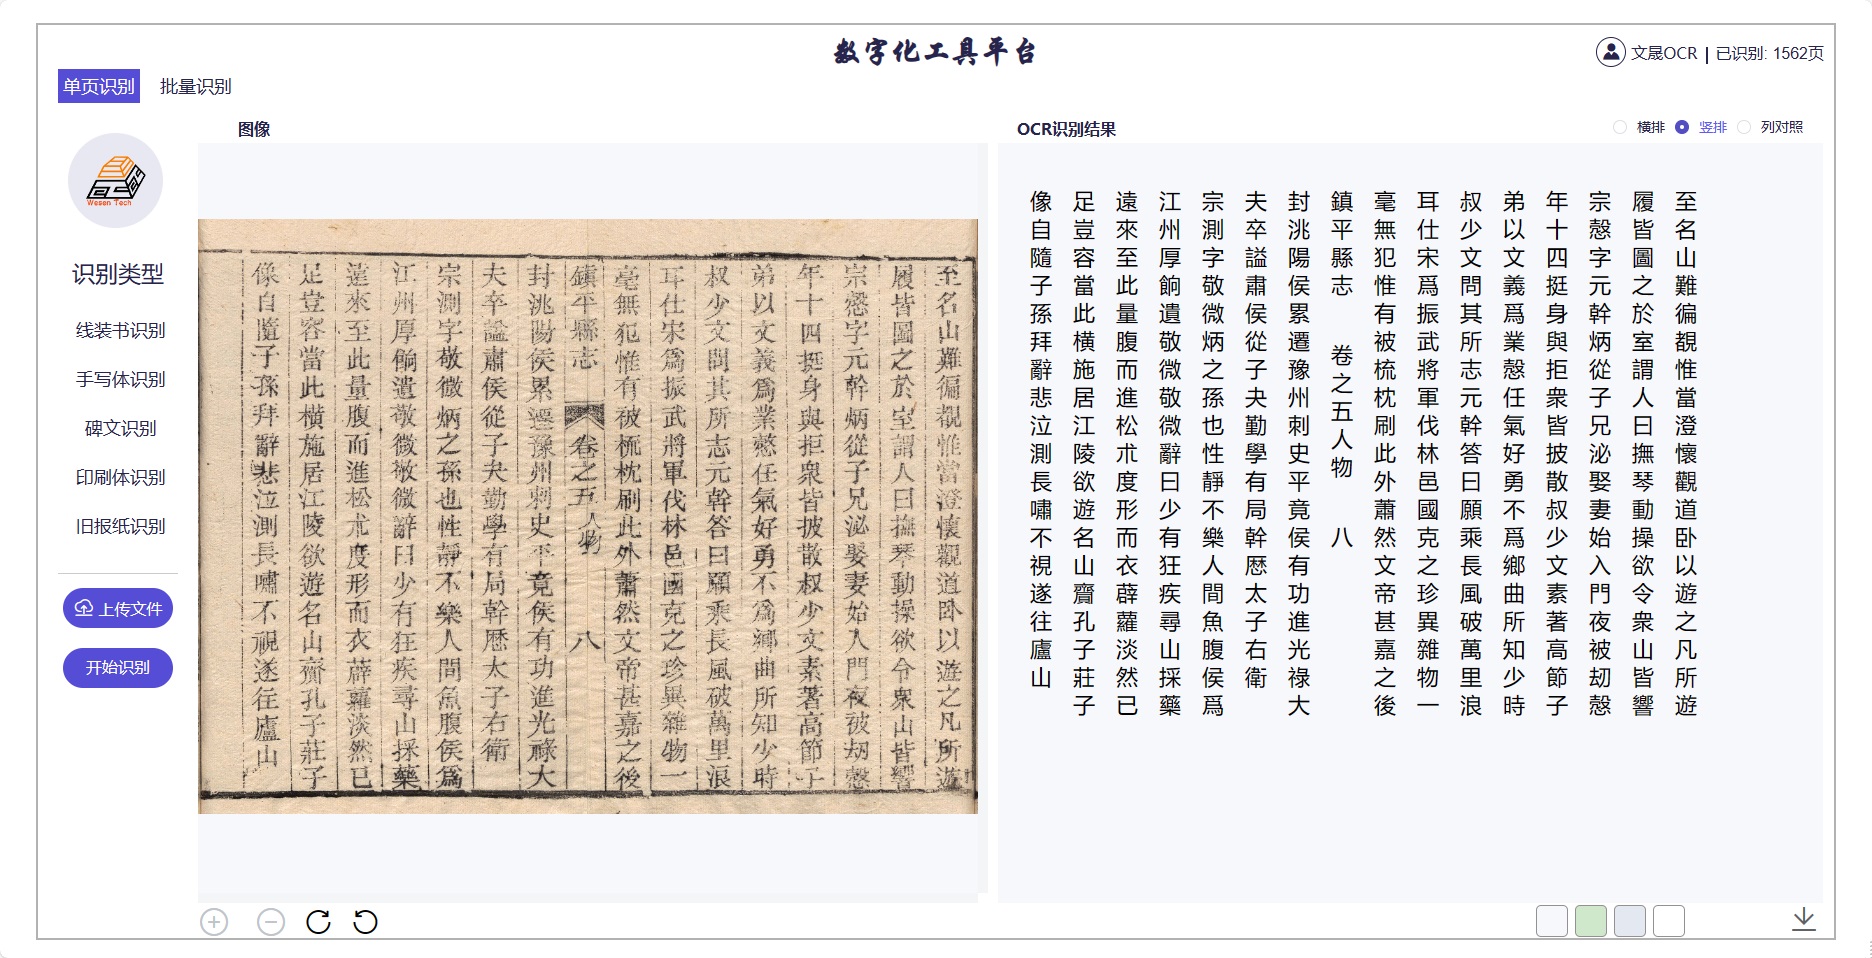 数字化工具平台
文晟OCR | 已识别: 1562页
单页识别 批量识别
Wesen Tech
识别类型
线装书识别
手写体识别
碑文识别
印刷体识别
旧报纸识别
上传文件
开始识别
图像
至名山難徧覩惟當澄懷觀道卧以遊之凡所遊
履皆圖之於室謂人曰撫琴動操欲令衆山皆響
宗慤字元幹炳從子兄泌娶妻始入門夜被刧慤
年十四挺身與拒衆皆披散叔少文素著高節子
弟以文義爲業慤任氣好勇不爲鄉曲所知少時
叔少文問其所志元幹答曰願乘長風破萬里浪
耳仕宋爲振武將軍伐林邑國克之珍異雜物一
毫無犯惟有被梳枕刷此外蕭然文帝甚嘉之後
鎮平縣志 卷之五人物 八
封洮陽侯累遷豫州刺史平竟侯有功進光祿大
夫卒謚肅侯從子夬勤學有局幹歷太子右衛
宗測字敬微炳之孫也性靜不樂人間魚腹侯爲
江州厚餉遺敬微敬微辭曰少有狂疾尋山採藥
遠來至此量腹而進松朮度形而衣薜蘿淡然已
足豈容當此橫施居江陵欲遊名山齎孔子莊子
像自隨子孫拜辭悲泣測長嘯不視遂往廬山
OCR识别结果
横排 竖排 列对照
至名山難徧覩惟當澄懷觀道卧以遊之凡所遊
履皆圖之於室謂人曰撫琴動操欲令衆山皆響
宗慤字元幹炳從子兄泌娶妻始入門夜被刧慤
年十四挺身與拒衆皆披散叔少文素著高節子
弟以文義爲業慤任氣好勇不爲鄉曲所知少時
叔少文問其所志元幹答曰願乘長風破萬里浪
耳仕宋爲振武將軍伐林邑國克之珍異雜物一
毫無犯惟有被梳枕刷此外蕭然文帝甚嘉之後
鎮平縣志 卷之五人物 八
封洮陽侯累遷豫州刺史平竟侯有功進光祿大
夫卒謚肅侯從子夬勤學有局幹歷太子右衛
宗測字敬微炳之孫也性靜不樂人間魚腹侯爲
江州厚餉遺敬微敬微辭曰少有狂疾尋山採藥
遠來至此量腹而進松朮度形而衣薜蘿淡然已
足豈容當此橫施居江陵欲遊名山齎孔子莊子
像自隨子孫拜辭悲泣測長嘯不視遂往廬山